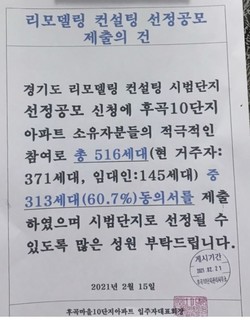 리모델링 컨설팅 선정공모
제출의 건
경기도 리모델링 컨설팅 시범단지
선정공모 신청에 후곡10단지
아파트 소유자분들의 적극적인
참여로 총 516세대(현 거주자:
371세대, 임대인:145세대) 중
313세대(60.7%)동의서를 제출
하였으며 시범단지로 선정될 수
있도록 많은 성원 부탁드립니다.
게시기간
2021년 2월 15일
후곡마을10단지아파트 입주자대표회장